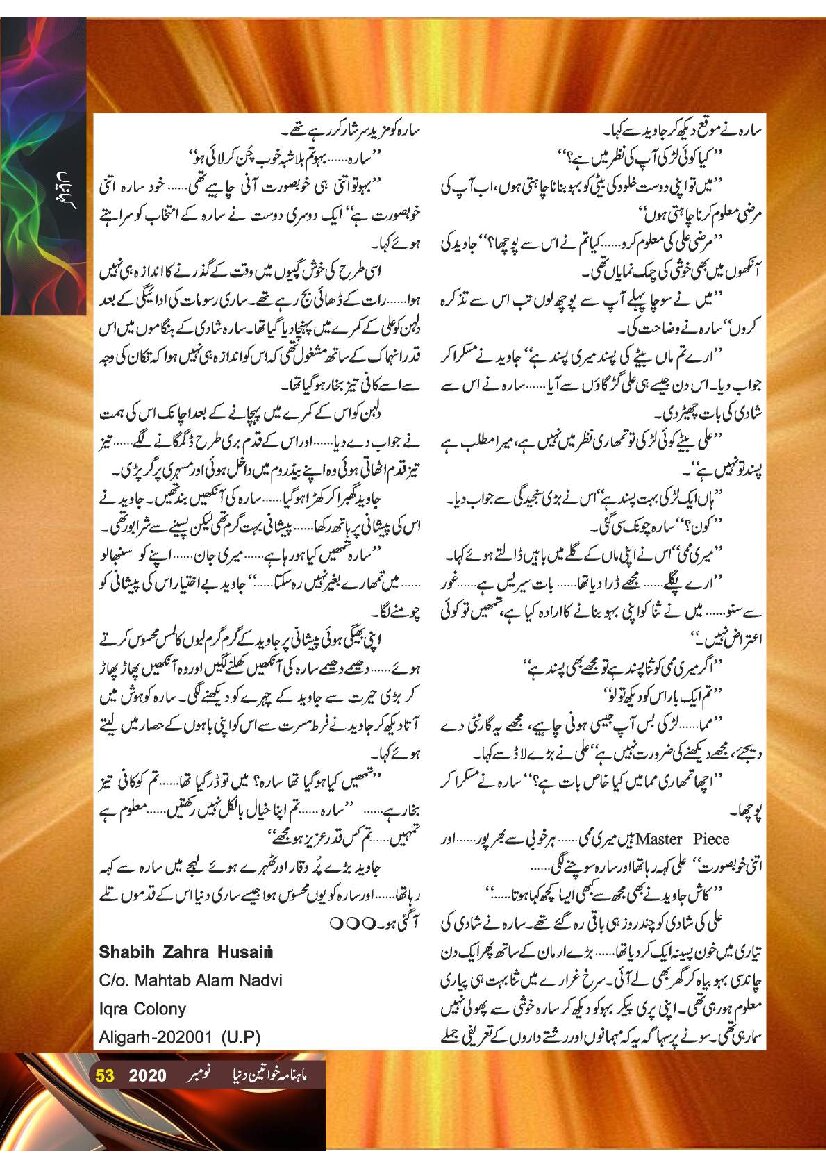 سارہ نے موقع دیکھ کر جاوید سے کہا۔
’’کیا کوئی لڑکی آپ کی نظر میں ہے؟‘‘
’’میں تو اپنی دوست خلود کی بیٹی کو بہو بنانا چاہتی ہوں، اب آپ کی
مرضی معلوم کرنا چاہتی ہوں‘‘
’’مرضی علی کی معلوم کرو......کیا تم نے اس سے پوچھا؟‘‘ جاوید کی
آنکھوں میں بھی خوشی کی چمک نمایاں تھی۔
’’میں نے سوچا پہلے آپ سے پوچھ لوں تب اس سے تذکرہ
کروں‘‘ سارہ نے وضاحت کی۔
’’ارے تم ماں بیٹے کی پسند میری پسند ہے‘‘ جاوید نے مسکرا کر
جواب دیا۔ اس دن جیسے ہی علی گڑگاؤں سے آیا......سارہ نے اس سے
شادی کی بات چھیڑ دی۔
’’علی بیٹے کوئی لڑکی تو تمھاری نظر میں نہیں ہے، میرا مطلب ہے
پسند تو نہیں ہے‘‘۔
’’ہاں ایک لڑکی بہت پسند ہے‘‘ اس نے بڑی سنجیدگی سے جواب دیا۔
’’کون؟‘‘ سارہ چونک سی گئی۔
’’میری ممی‘‘ اس نے اپنی ماں کے گلے میں باہیں ڈالتے ہوئے کہا۔
’’ارے پگلے......مجھے ڈرا دیا تھا......بات سیریس ہے......غور
سے سنو......میں نے ثنا کو اپنی بہو بنانے کا ارادہ کیا ہے، تمھیں تو کوئی
اعتراض نہیں۔‘‘
’’اگر میری ممی کو ثنا پسند ہے تو مجھے بھی پسند ہے‘‘
’’تم ایک بار اس کو دیکھ تو لو‘‘
’’مما......لڑکی بس آپ جیسی ہونی چاہیے، مجھے یہ گارنٹی دے
دیجئے، مجھے دیکھنے کی ضرورت نہیں ہے‘‘ علی نے بڑے لاڈ سے کہا۔
’’اچھا تمھاری مما میں کیا خاص بات ہے؟‘‘ سارہ نے مسکرا کر
پوچھا۔
Master Piece ہیں میری ممی......ہر خوبی سے بھرپور......اور
اتنی خوبصورت‘‘ علی کہہ رہا تھا اور سارہ سوچنے لگی......
’’کاش جاوید نے بھی مجھ سے کبھی ایسا کچھ کہا ہوتا......‘‘
علی کی شادی کو چند روز ہی باقی رہ گئے تھے۔ سارہ نے شادی کی
تیاری میں خون پسینہ ایک کر دیا تھا......بڑے ارمان کے ساتھ پھر ایک دن
چاند سی بہو بیاہ کر گھر بھی لے آئی۔ سرخ غرارے میں ثنا بہت ہی پیاری
معلوم ہو رہی تھی۔ اپنی پری پیکر بہو کو دیکھ کر سارہ خوشی سے پھولی نہیں
سما رہی تھی۔ سونے پر سہاگہ یہ کہ مہمانوں اور رشتے داروں کے تعریفی جملے
سارہ کو مزید سرشار کر رہے تھے۔
’’سارہ......بہو تم بلاشبہ خوب چُن کر لائی ہو‘‘
’’بہو تو اتنی ہی خوبصورت آنی چاہیے تھی......خود سارہ اتنی
خوبصورت ہے‘‘ ایک دوسری دوست نے سارہ کے انتخاب کو سراہتے
ہوئے کہا۔
اسی طرح کی خوش گپیوں میں وقت کے گذرنے کا اندازہ ہی نہیں
ہوا......رات کے ڈھائی بج رہے تھے۔ ساری رسومات کی ادائیگی کے بعد
دلہن کو علی کے کمرے میں پہنچا دیا گیا تھا۔ سارہ شادی کے ہنگاموں میں اس
قدر انہماک کے ساتھ مشغول تھی کہ اس کو اندازہ ہی نہیں ہوا کہ تکان کی وجہ
سے اسے کافی تیز بخار ہو گیا تھا۔
دلہن کو اس کے کمرے میں پہچانے کے بعد اچانک اس کی ہمت
نے جواب دے دیا......اور اس کے قدم بری طرح ڈگمگانے لگے......تیز
تیز قدم اٹھاتی ہوئی وہ اپنے بیڈروم میں داخل ہوئی اور مسہری پر گر پڑی۔
جاوید گھبرا کر کھڑا ہو گیا......سارہ کی آنکھیں بند تھیں۔ جاوید نے
اس کی پیشانی پر ہاتھ رکھا......پیشانی بہت گرم تھی لیکن پسینے سے شرابور تھی۔
’’سارہ تمھیں کیا ہو رہا ہے......میری جان......اپنے کو سنبھالو
......میں تمھارے بغیر نہیں رہ سکتا......‘‘ جاوید بے اختیار اس کی پیشانی کو
چومنے لگا۔
اپنی بھیگی ہوئی پیشانی پر جاوید کے گرم گرم لبوں کا لمس محسوس کرتے
ہوئے......دھیمے دھیمے سارہ کی آنکھیں کھلنے لگیں اور وہ آنکھیں پھاڑ پھاڑ
کر بڑی حیرت سے جاوید کے چہرے کو دیکھنے لگی۔ سارہ کو ہوش میں
آتا دیکھ کر جاوید نے فرط مسرت سے اس کو اپنی باہوں کے حصار میں لیتے
ہوئے کہا۔
’’تمھیں کیا ہو گیا تھا سارہ؟ میں تو ڈر گیا تھا......تم کو کافی تیز
بخار ہے......’’سارہ......تم اپنا خیال بالکل نہیں رکھتیں......معلوم ہے
تمہیں......تم کس قدر عزیز ہو مجھے‘‘
جاوید بڑے پُر وقار اور ٹھہرے ہوئے لہجے میں سارہ سے کہہ
رہا تھا......اور سارہ کو یوں محسوس ہوا جیسے ساری دنیا اس کے قدموں تلے
آ گئی ہو۔ ❍❍❍
Shabih Zahra Husain
C/o. Mahtab Alam Nadvi
Iqra Colony
Aligarh-202001 (U.P)
ماہنامہ خواتین دنیا نومبر 2020 53